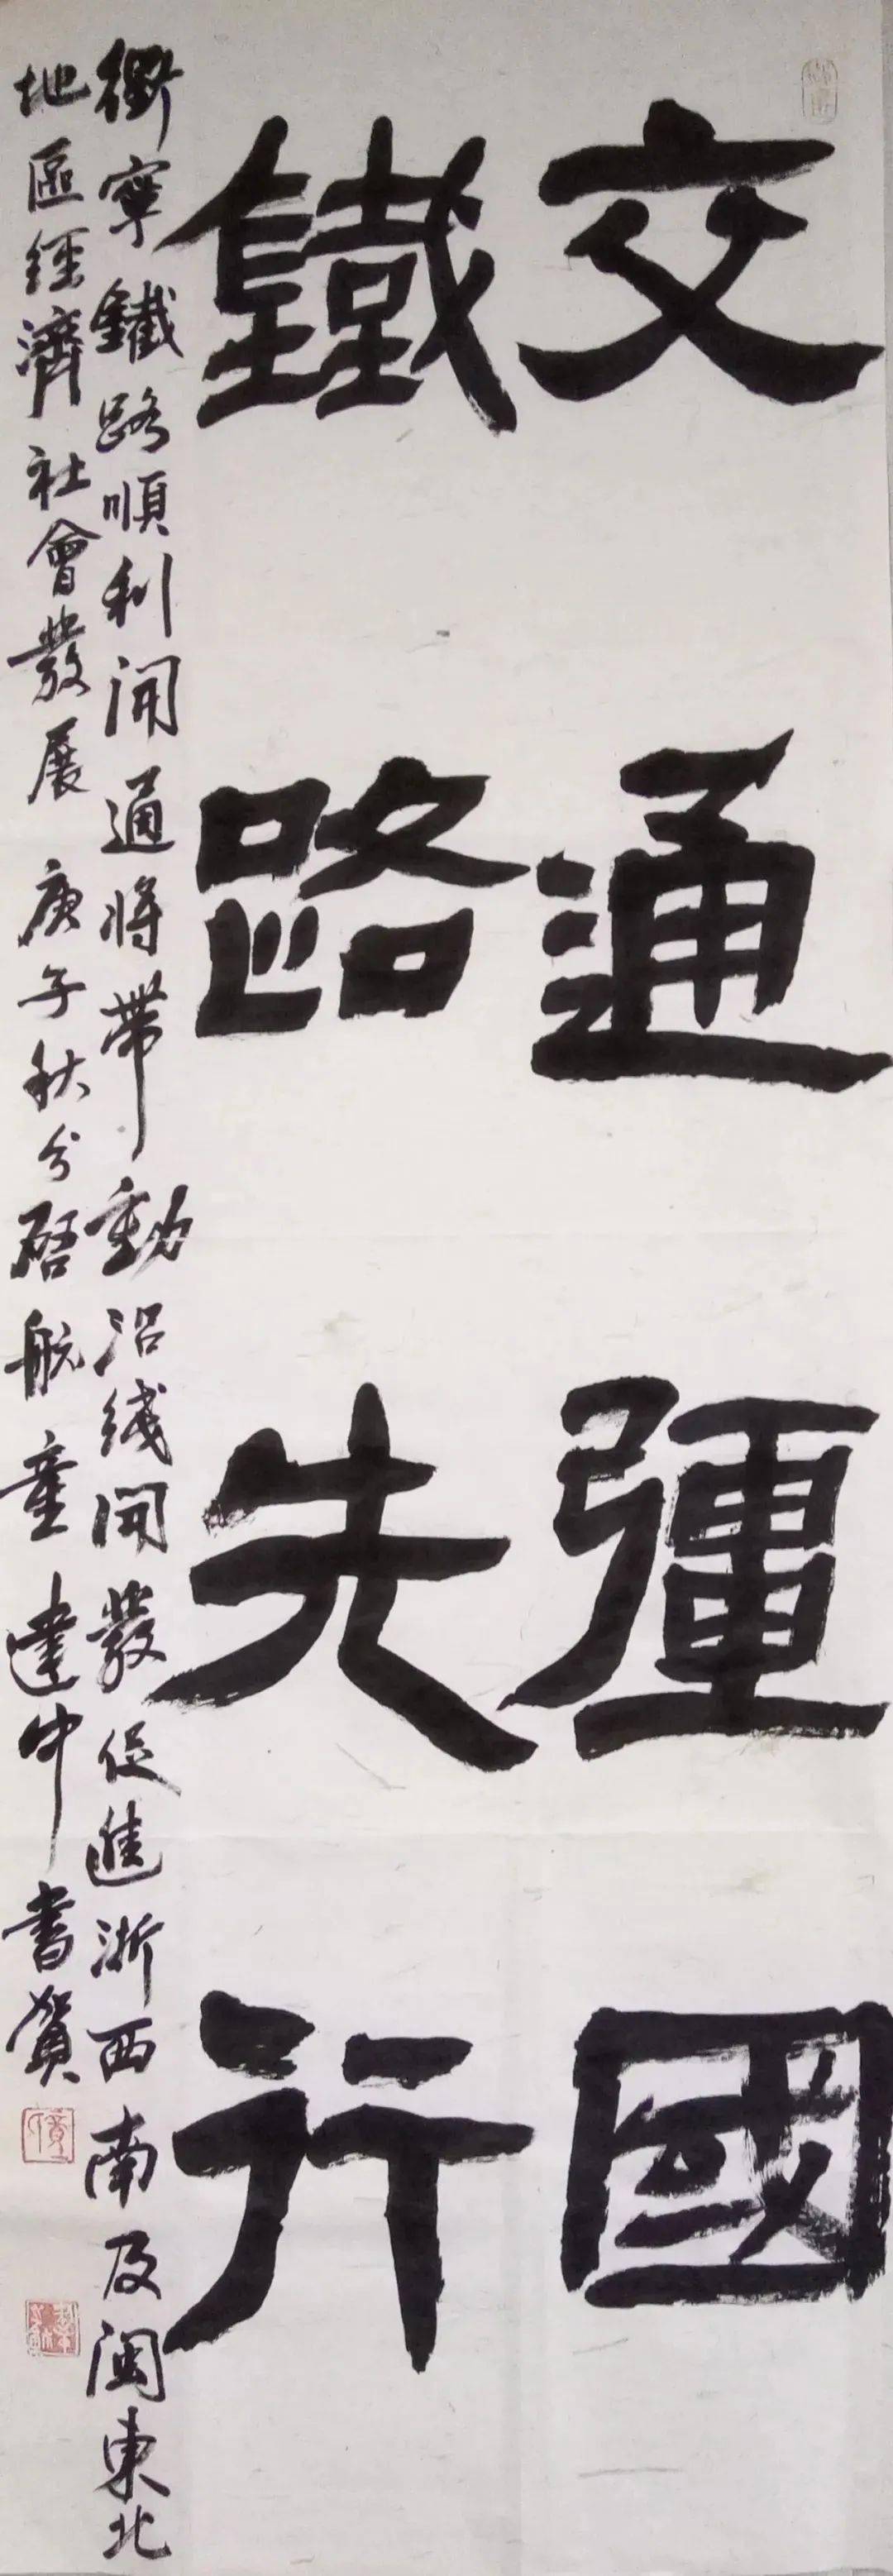 交通彊國
鐵路先行
衢寧鐵路順利開通將帶動沿线開發促進浙西南及閩東北
地區經濟社會發展 庚子秋分啓航童達中書賀